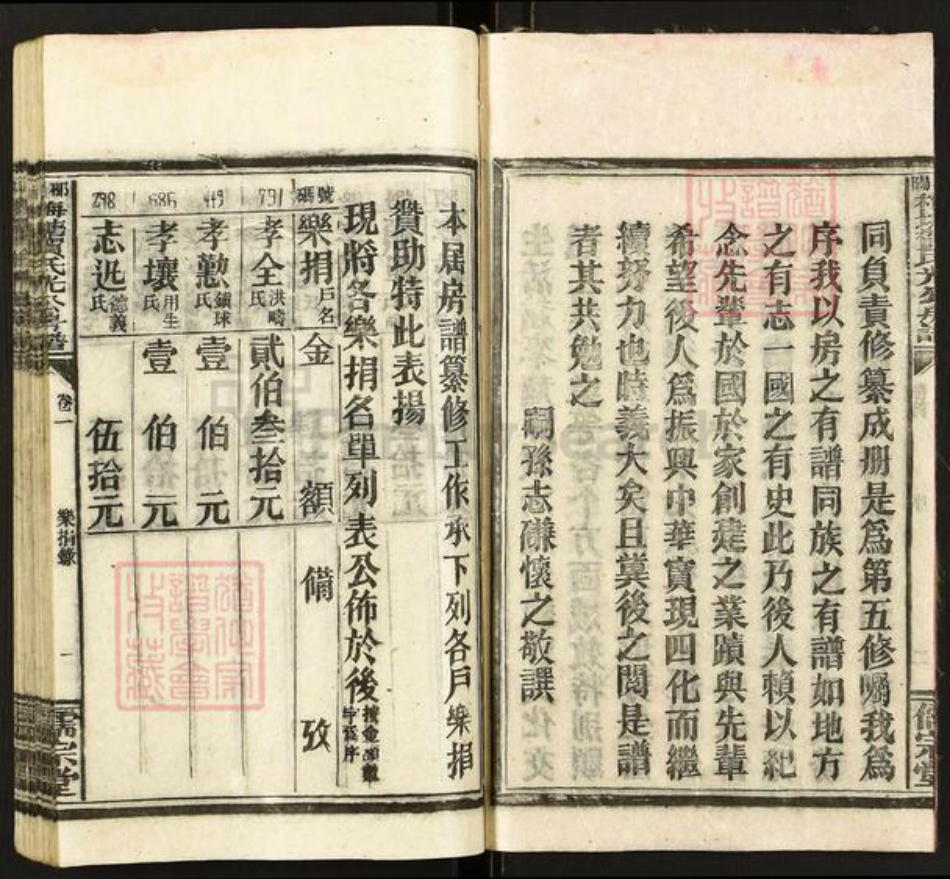 同負責修纂成册是爲第五修囑我爲
序我以房之有譜同族之有譜如地方
之有志一國之有史此乃後人賴以紀
念先輩於國於家創建之業蹟與先輩
希望後人爲振興中華實現四化而繼
續努力也時義大矣且冀後之閱是譜
者其共勉之
嗣孫志磏懷之敬譔
儒宗堂
本居房譜纂修工作承下列各戶樂捐
贊助特此表揚
現將各樂捐名單列表公佈於後
號碼 樂捐戶名 金額 備攷
731 孝全氏洪疇 貳伯叁拾元
449 孝懃氏鎮球 壹伯元
686 孝壤氏用生 壹伯元
298 志迡氏德義 伍拾元
卷一
樂捐錄
一
儒宗堂